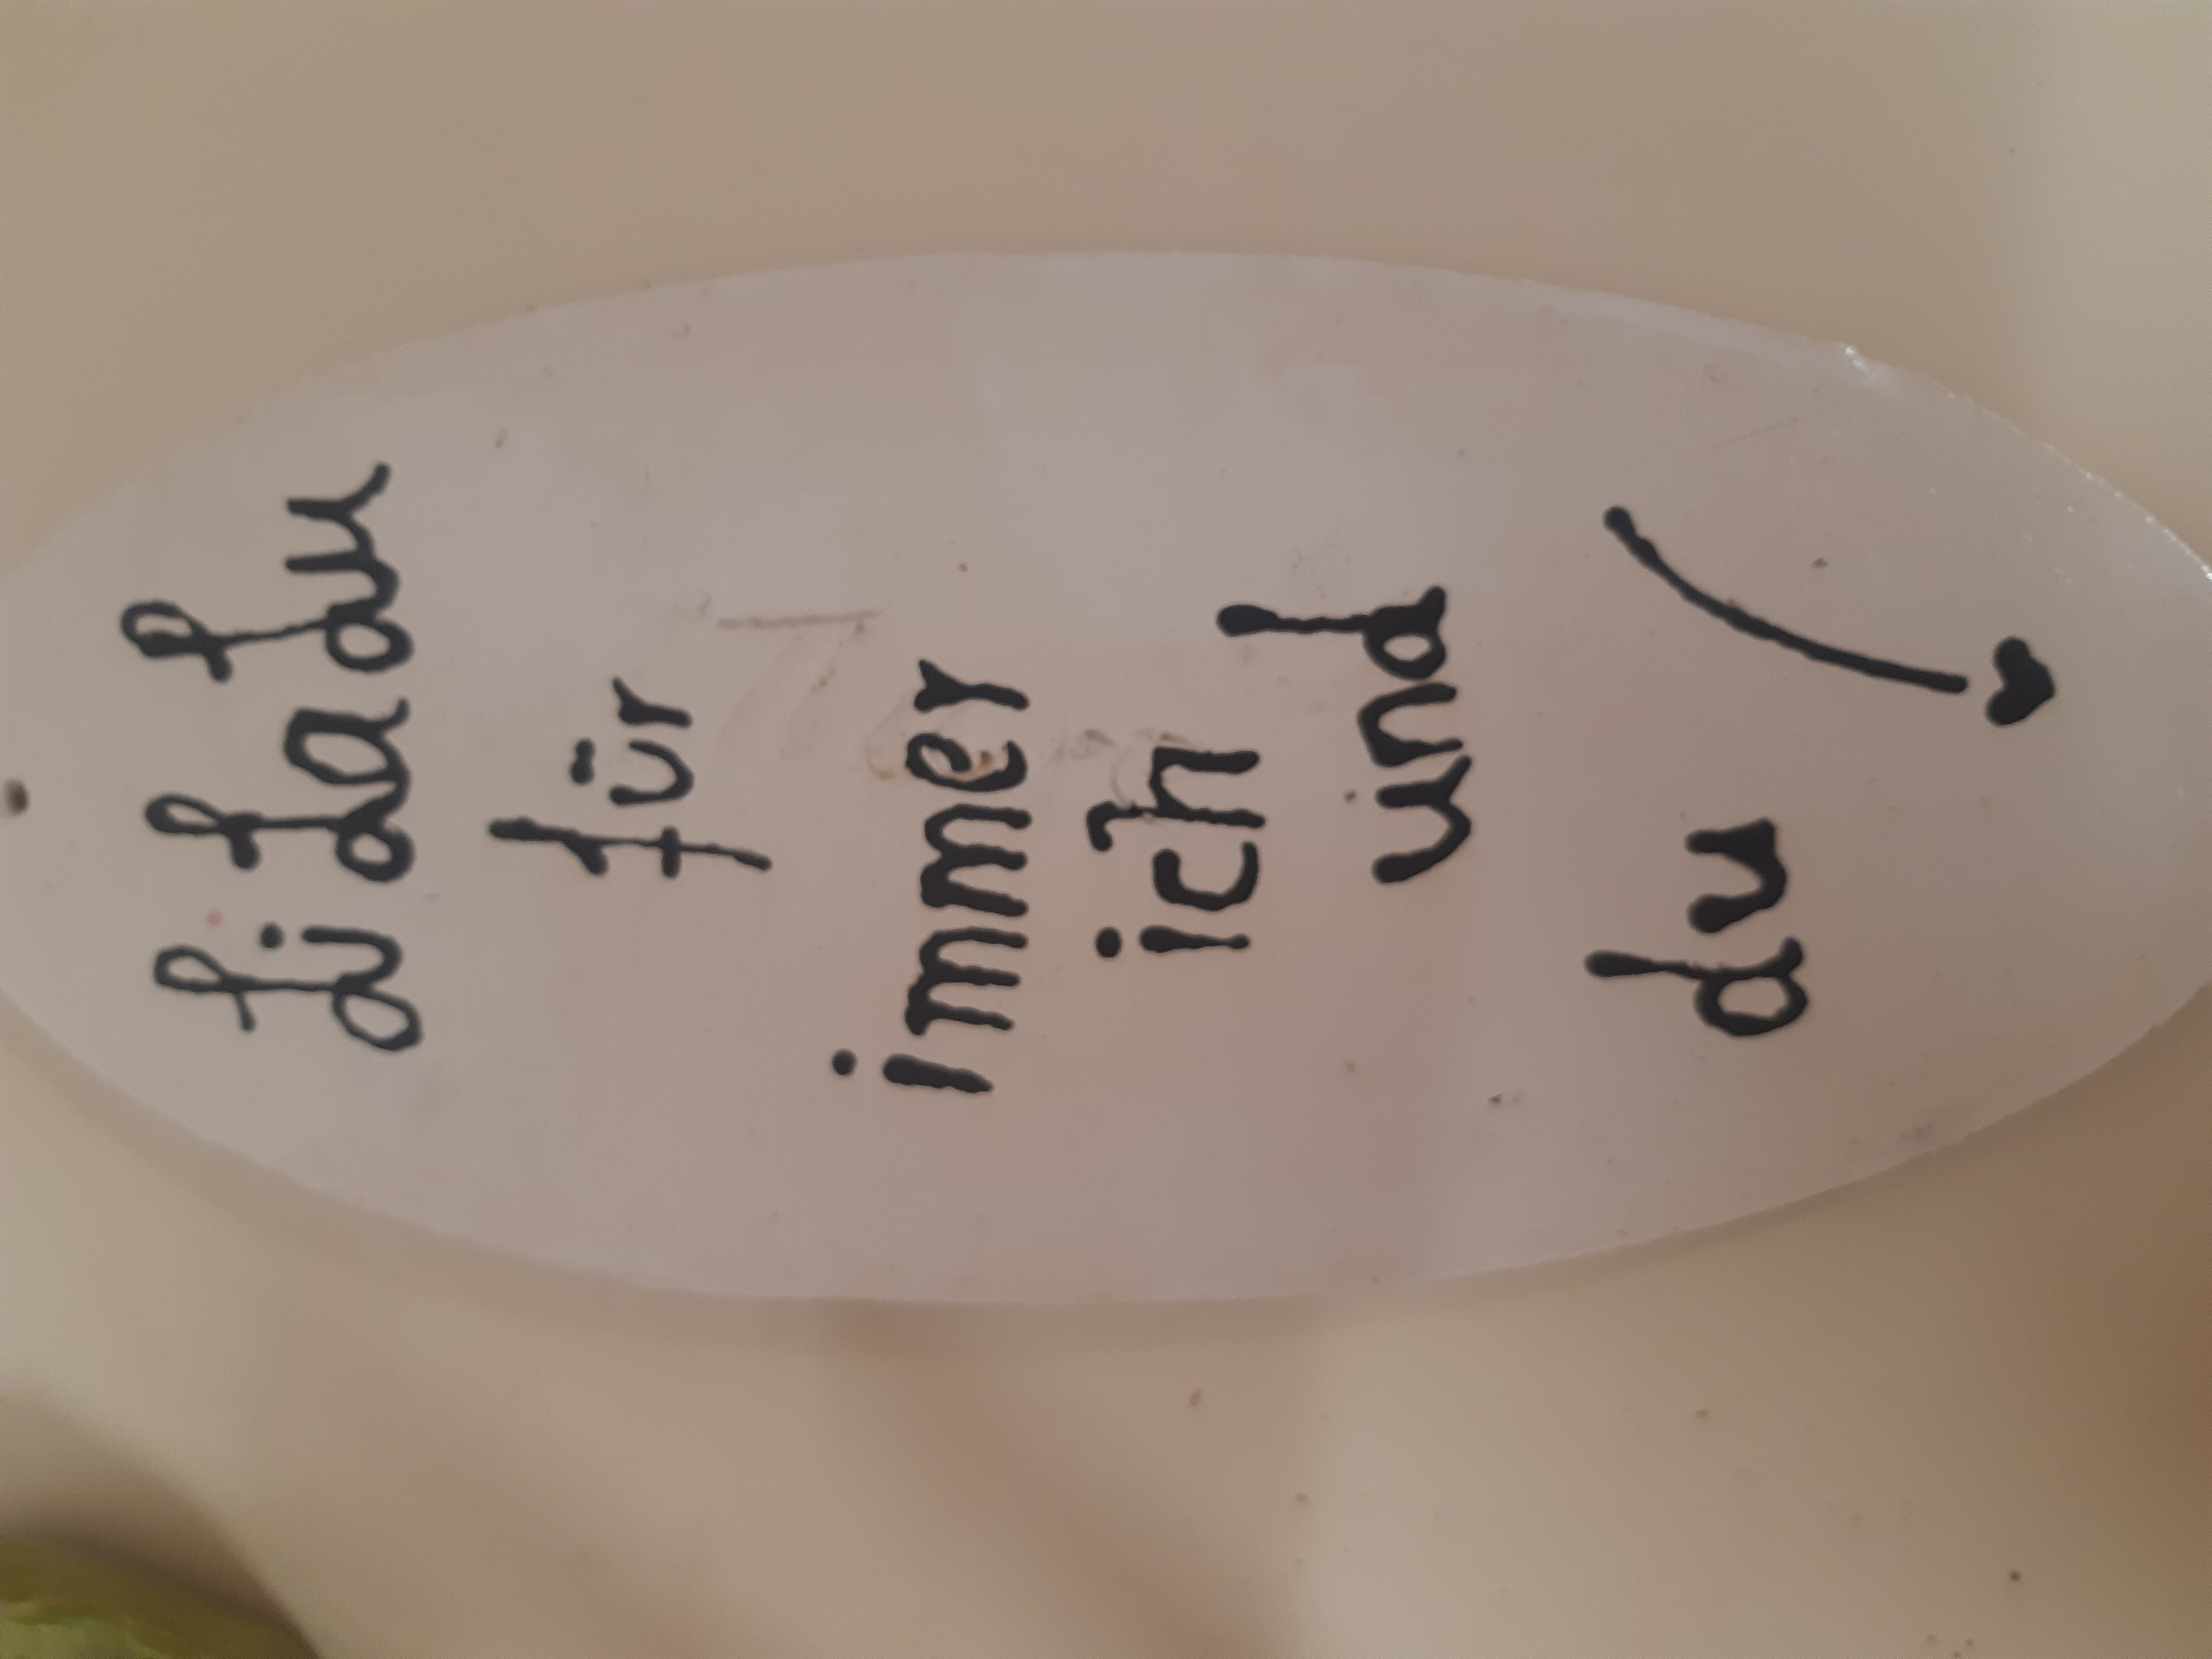 Li La Lu
für
immer
ich
und
du